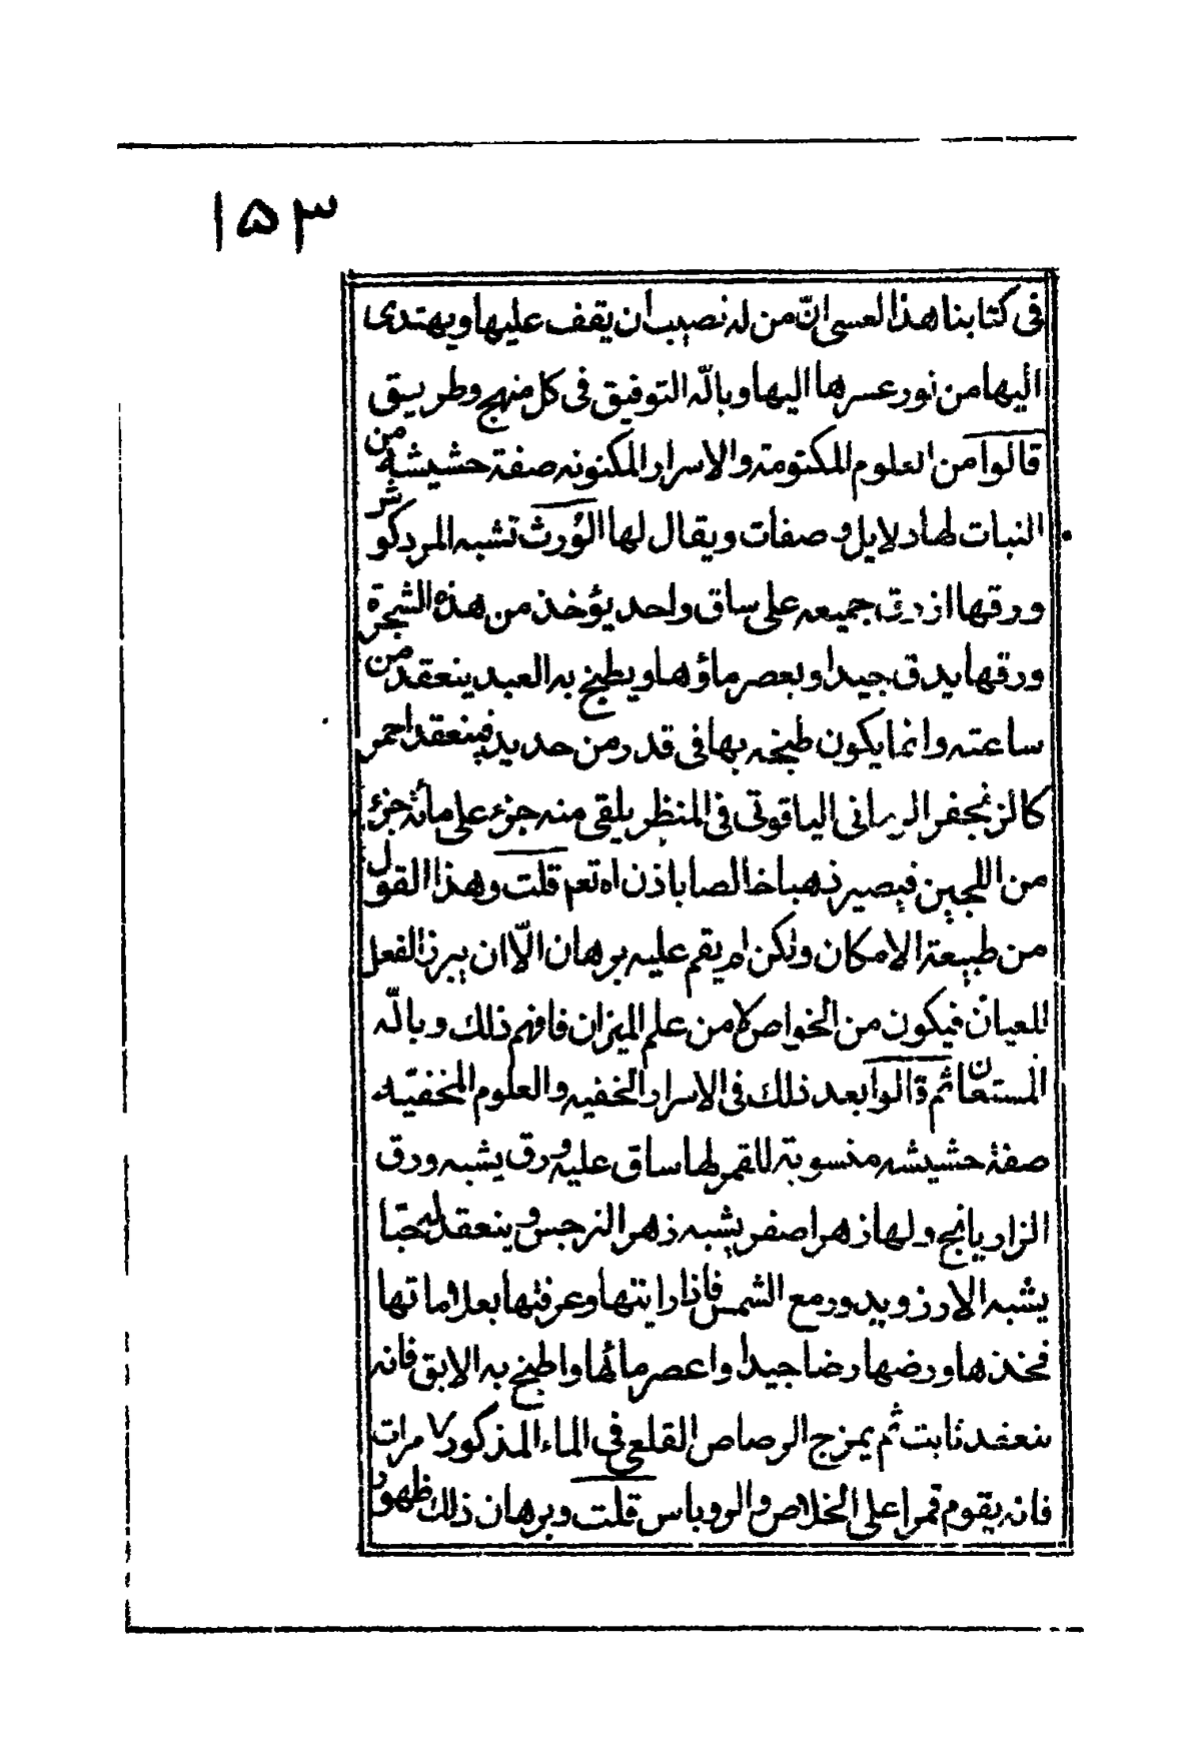 ١٥٣
فى كتابنا هذا لعسى انّ من له نصيب ان يقف عليها ويهتدى
اليها من نور عسرها اليها وبالله التوفيق فى كل منهج وطريق
قالوا من العلوم المكتومة والاسرار المكنونه صفة حشيشه من
النبات لها دلايل وصفات ويقال لها الورث تشبه المردكوش
ورقها ازرق جميعه على ساق واحد يؤخذ من هذه الشجرة
ورقها يدق جيدا ويعصر ماؤها ويطبخ به العبد ينعقد من
ساعته وانما يكون طبخه بها فى قدر من حديد فينعقد احمر
كالزنجفر الرمانى الياقوتى فى المنظر يلقى منه جزء على مائة جزء
من اللجين فيصير ذهبا خالصا باذن اه تعم قلت وهذا القول
من طبيعة الامكان ولكن لم يقم عليه برهان الّا ان يبرز الفعل
للعيان فيكون من الخواص لا من علم الميزان فافهم ذلك وبالله
المستعان ثم قالوا بعد ذلك فى الاسرار الخفيه والعلوم المخفيّه
صفة حشيشه منسوبة للقمر لها ساق عليه ورق يشبه ورق
الزاريانج ولها زهر اصفر يشبه زهر النرجس وينعقد له حبّا
يشبه الارز ويدور مع الشمس فاذا رايتها وعرفتها بعلاماتها
فخذها ورضها رضا جيدا واعصر مائها واطبخ به الابق فانه
ينعقد ثابت ثم يمزج الرصاص القلعى فى الماء المذكور ٧ مرات
فانه يقوم قمرا على الخلاص والروباس قلت وبرهان ذلك ظهور